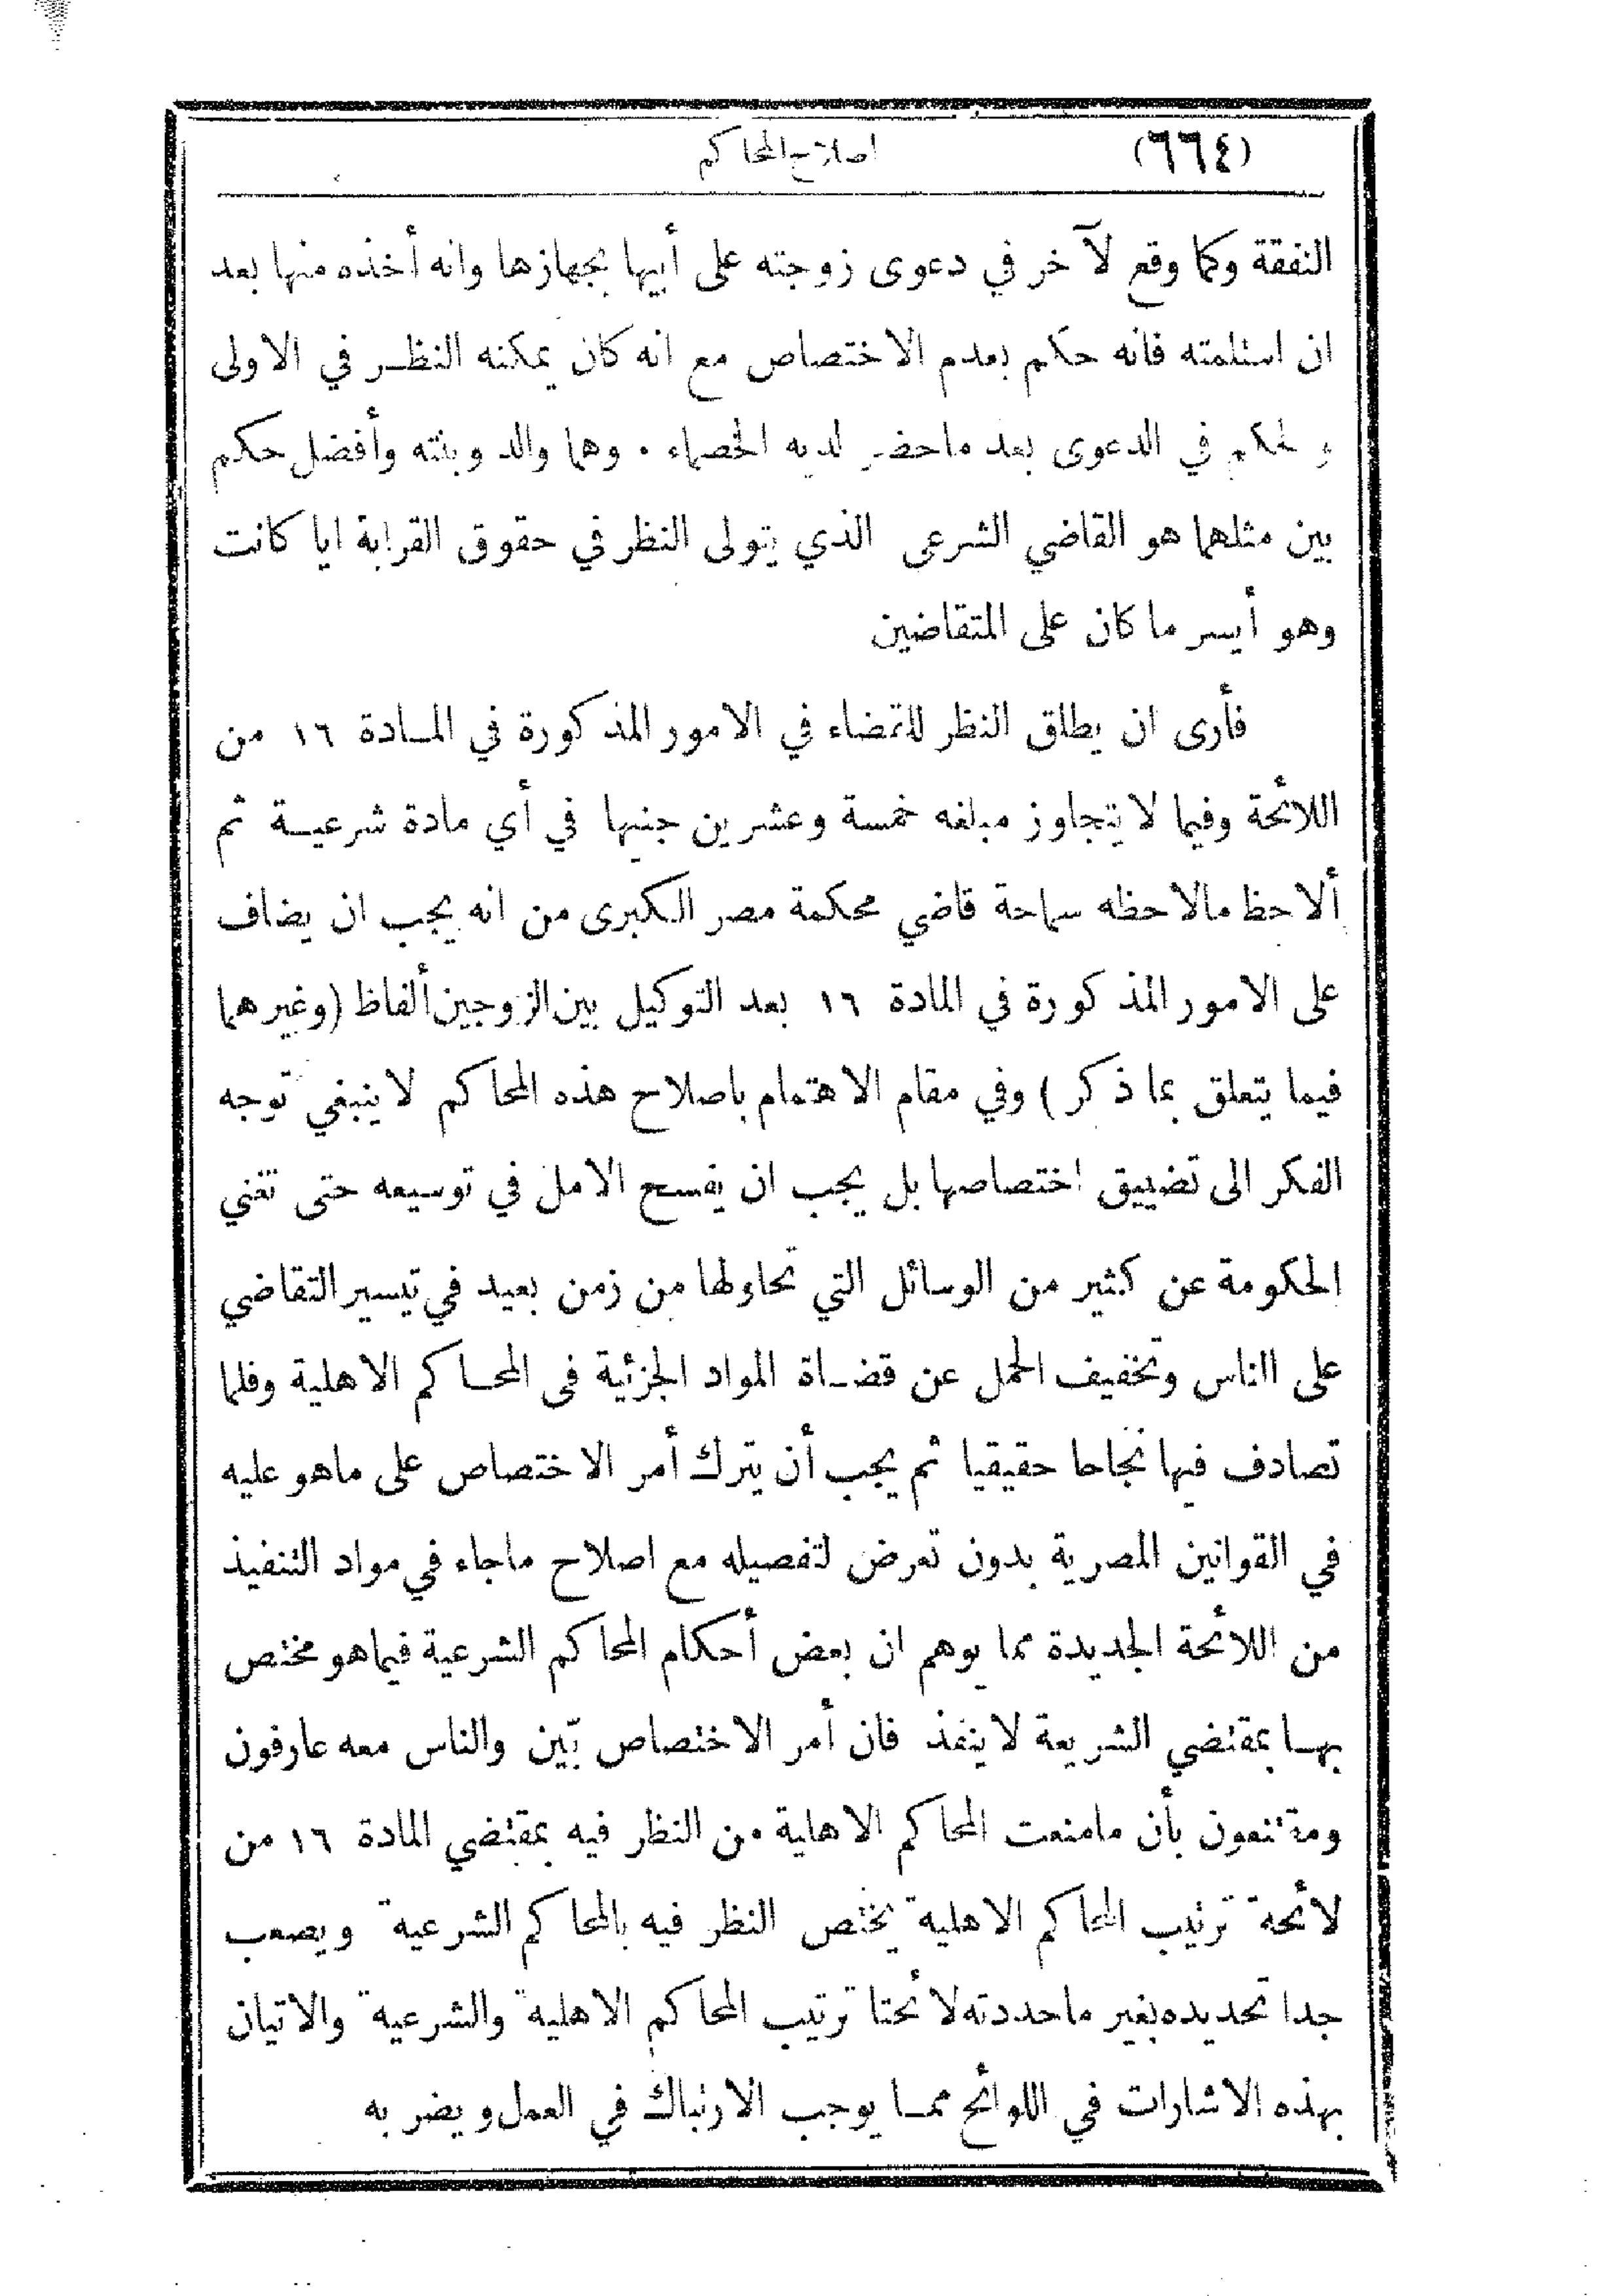 (٦٦٤) اصلاح المحاكم
النفقة وكما وقع لآخر في دعوى زوجته على أبيها بجهازها وانه أخذه منها بعد
ان استلمته فانه حكم بعدم الاختصاص مع انه كان يمكنه النظر في الاولى
والحكم في الدعوى بعد ماحضر لديه الخصماء . وهما والد وبنته وأفضل حكم
بين مثلهما هو القاضي الشرعى الذي يتولى النظر في حقوق القرابة ايا كانت
وهو أيسر ما كان على المتقاضين
فأرى ان يطلق النظر للقضاء في الامور المذكورة في المادة ١٦ من
اللائحة وفيما لا يتجاوز مبلغه خمسة وعشرين جنيها في أي مادة شرعية ثم
ألاحظ مالاحظه سماحة قاضي محكمة مصر الكبرى من انه يجب ان يضاف
على الامور المذكورة في المادة ١٦ بعد التوكيل بين الزوجين ألفاظ (وغيرهما
فيما يتعلق بما ذكر) وفي مقام الاهتمام باصلاح هذه المحاكم لا ينبغي توجه
الفكر الى تضييق اختصاصها بل يجب ان يفسح الامل في توسيعه حتى تغني
الحكومة عن كثير من الوسائل التي تحاولها من زمن بعيد في تيسير التقاضي
على الناس وتخفيف الحمل عن قضاة المواد الجزئية فى المحاكم الاهلية وقلما
تصادف فيها نجاحا حقيقيا ثم يجب أن يترك أمر الاختصاص على ماهو عليه
في القوانين المصرية بدون تعرض لتفصيله مع اصلاح ماجاء في مواد التنفيذ
من اللائحة الجديدة مما يوهم ان بعض أحكام المحاكم الشرعية فيما هو مختص
بها بمقتضي الشريعة لا ينفذ فان أمر الاختصاص بيّن والناس معه عارفون
ومقتنعون بأن مامنعت المحاكم الاهلية من النظر فيه بمقتضي المادة ١٦ من
لائحة ترتيب المحاكم الاهلية يختص النظر فيه بالمحاكم الشرعية ويصعب
جدا تحديده بغير ماحددته لائحتا ترتيب المحاكم الاهلية والشرعية والاتيان
بهذه الاشارات في اللوائح مما يوجب الارتباك في العمل ويضر به